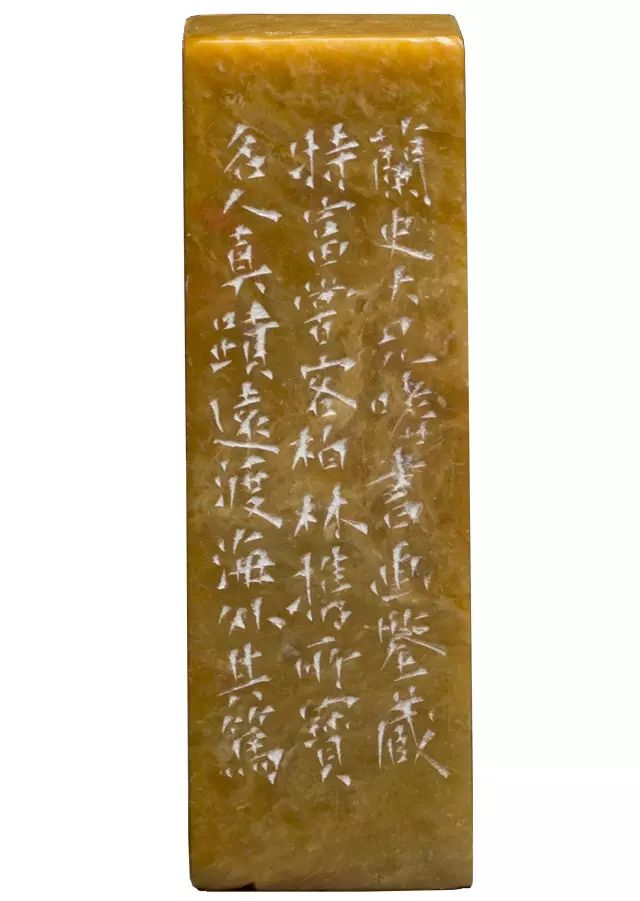 蘭史大兄嗜書畫鑒藏
特富嘗客柏林攜所寶
名人真蹟遠渡海外其篤